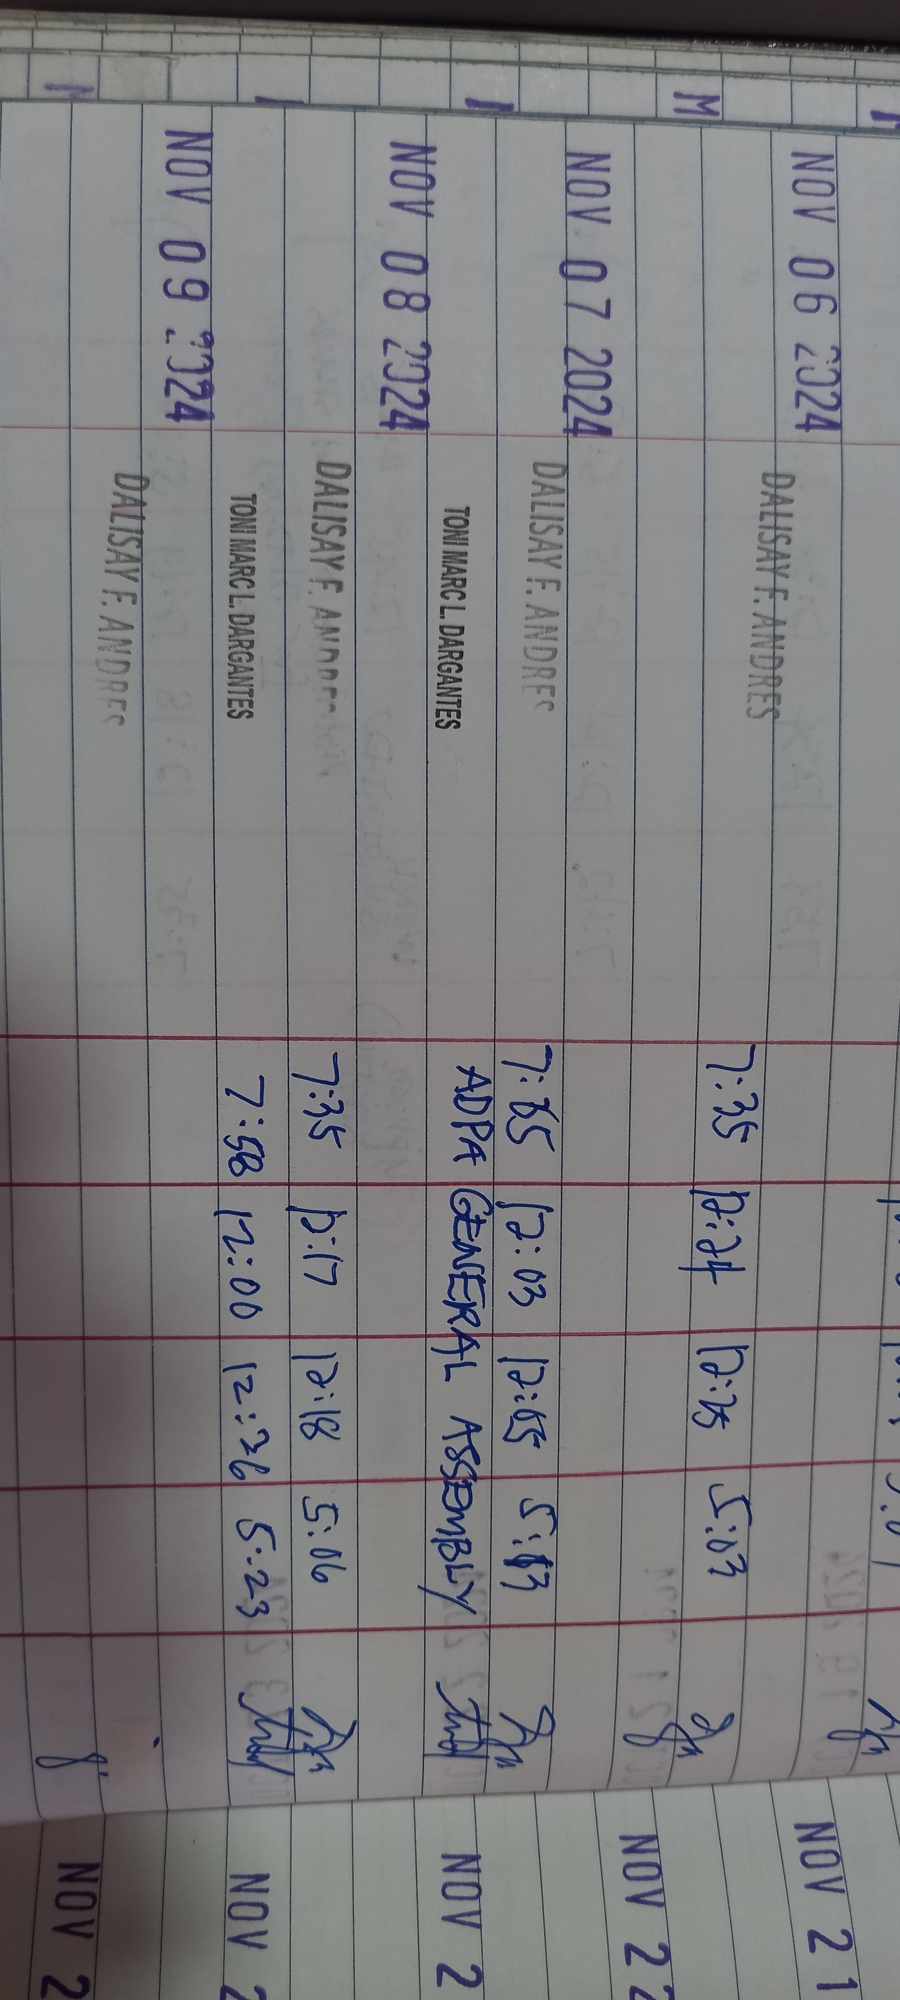 NOV 06 2024
DALISAY F. ANDRES 7:35 12:24 12:25 5:03
NOV 07 2024
DALISAY F. ANDRES 12:03 12:05
TONI MARC L. DARGANTES ADPA GENERAL ASSEMBLY
NOV 08 2024
DALISAY F. ANDRES 7:35 12:17 12:18 5:06
TONI MARC L. DARGANTES 7:58 12:00 12:36 5:23
NOV 09 2024
DALISAY F. ANDRES
NOV 21
NOV 22
NOV 2
NOV 2
NOV 2